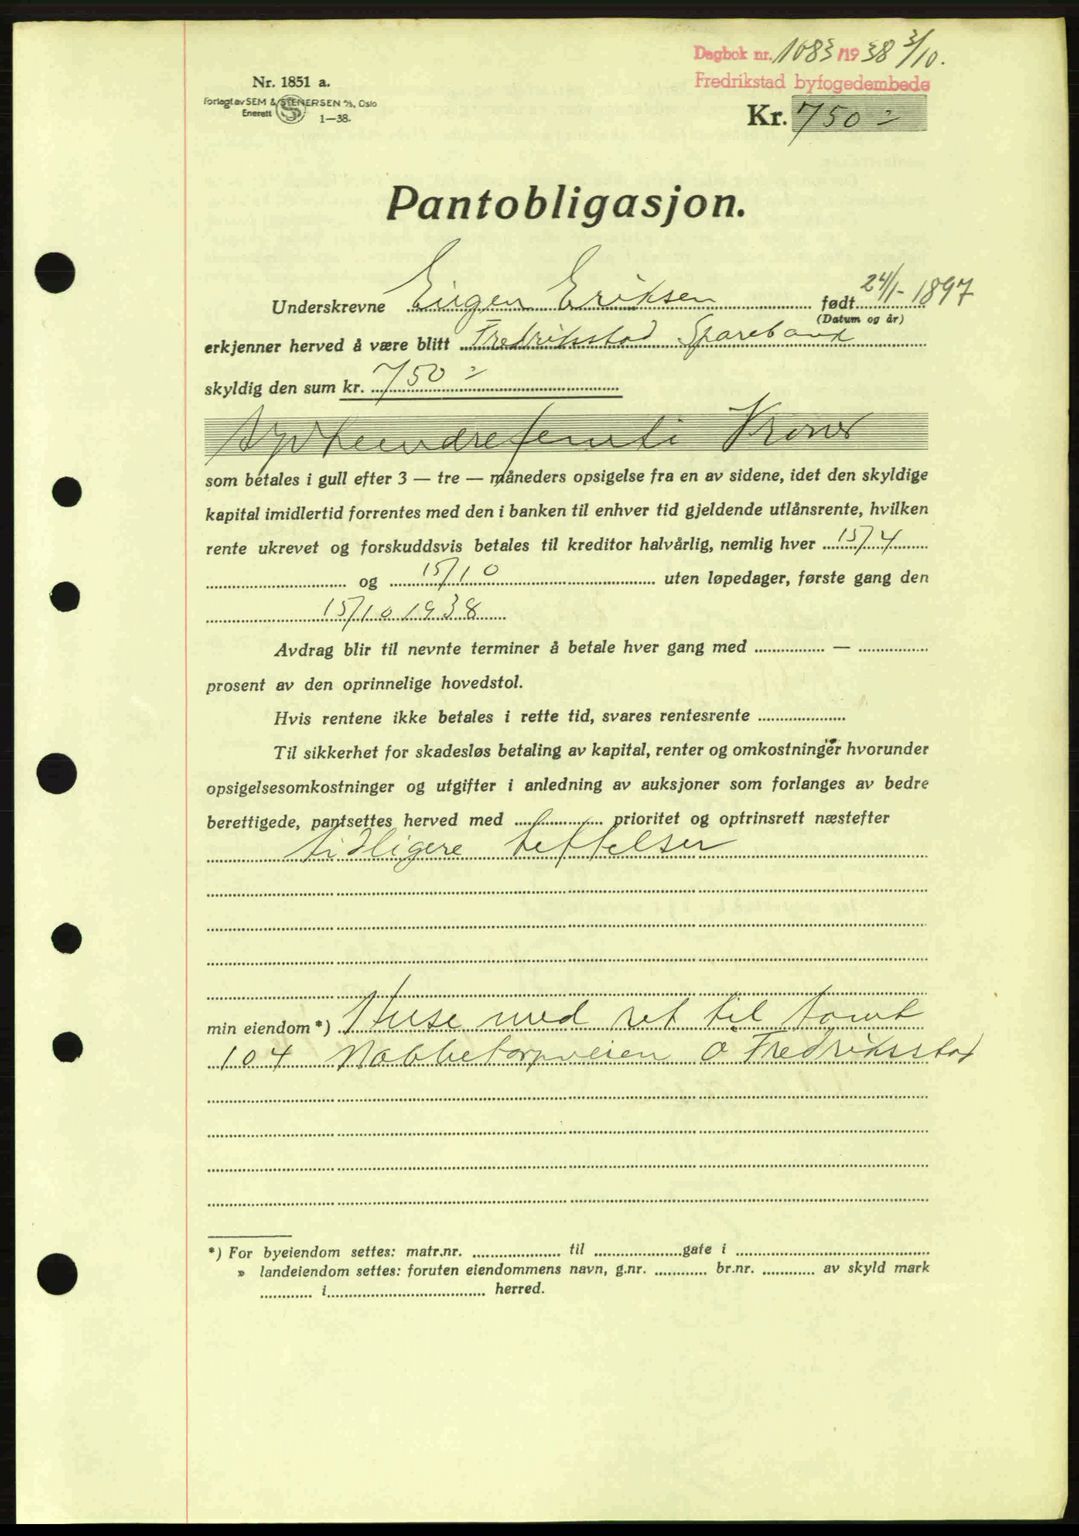 Dagbok nr. 1083/1938 3/10.
Fredrikstad byfogedembede
Nr. 1851 a.
Forlagt av SEM & STENERSEN A/S, Oslo
Enerett 1—38.
Kr. 750 =
Pantobligasjon.
Underskrevne Eugen Eriksen født 24/1- 1897
(Datum og år)
erkjenner herved å være blitt Fredrikstad Sparebank
skyldig den sum kr. 750 =
Syvhundrefemti Kroner
som betales i gull efter 3 — tre — måneders opsigelse fra en av sidene, idet den skyldige
kapital imidlertid forrentes med den i banken til enhver tid gjeldende utlånsrente, hvilken
rente ukrevet og forskuddsvis betales til kreditor halvårlig, nemlig hver 15/4
og 15/10 uten løpedager, første gang den
15/10 1938
Avdrag blir til nevnte terminer å betale hver gang med ................ — ................
prosent av den oprinnelige hovedstol.
Hvis rentene ikke betales i rette tid, svares rentesrente ....................
Til sikkerhet for skadesløs betaling av kapital, renter og omkostninger hvorunder
opsigelsesomkostninger og utgifter i anledning av auksjoner som forlanges av bedre
berettigede, pantsettes herved med .................... prioritet og optrinsrett næstefter
tidligere heftelser
min eiendom *) Huse med ret til tomt
104 Nabbetorpveien i Fredriksstad
*) For byeiendom settes: matr.nr. .................... til ....................gate i ....................
» landeiendom settes: foruten eiendommens navn, g.nr. ............ br.nr. ............ av skyld mark
............ i.................... herred.